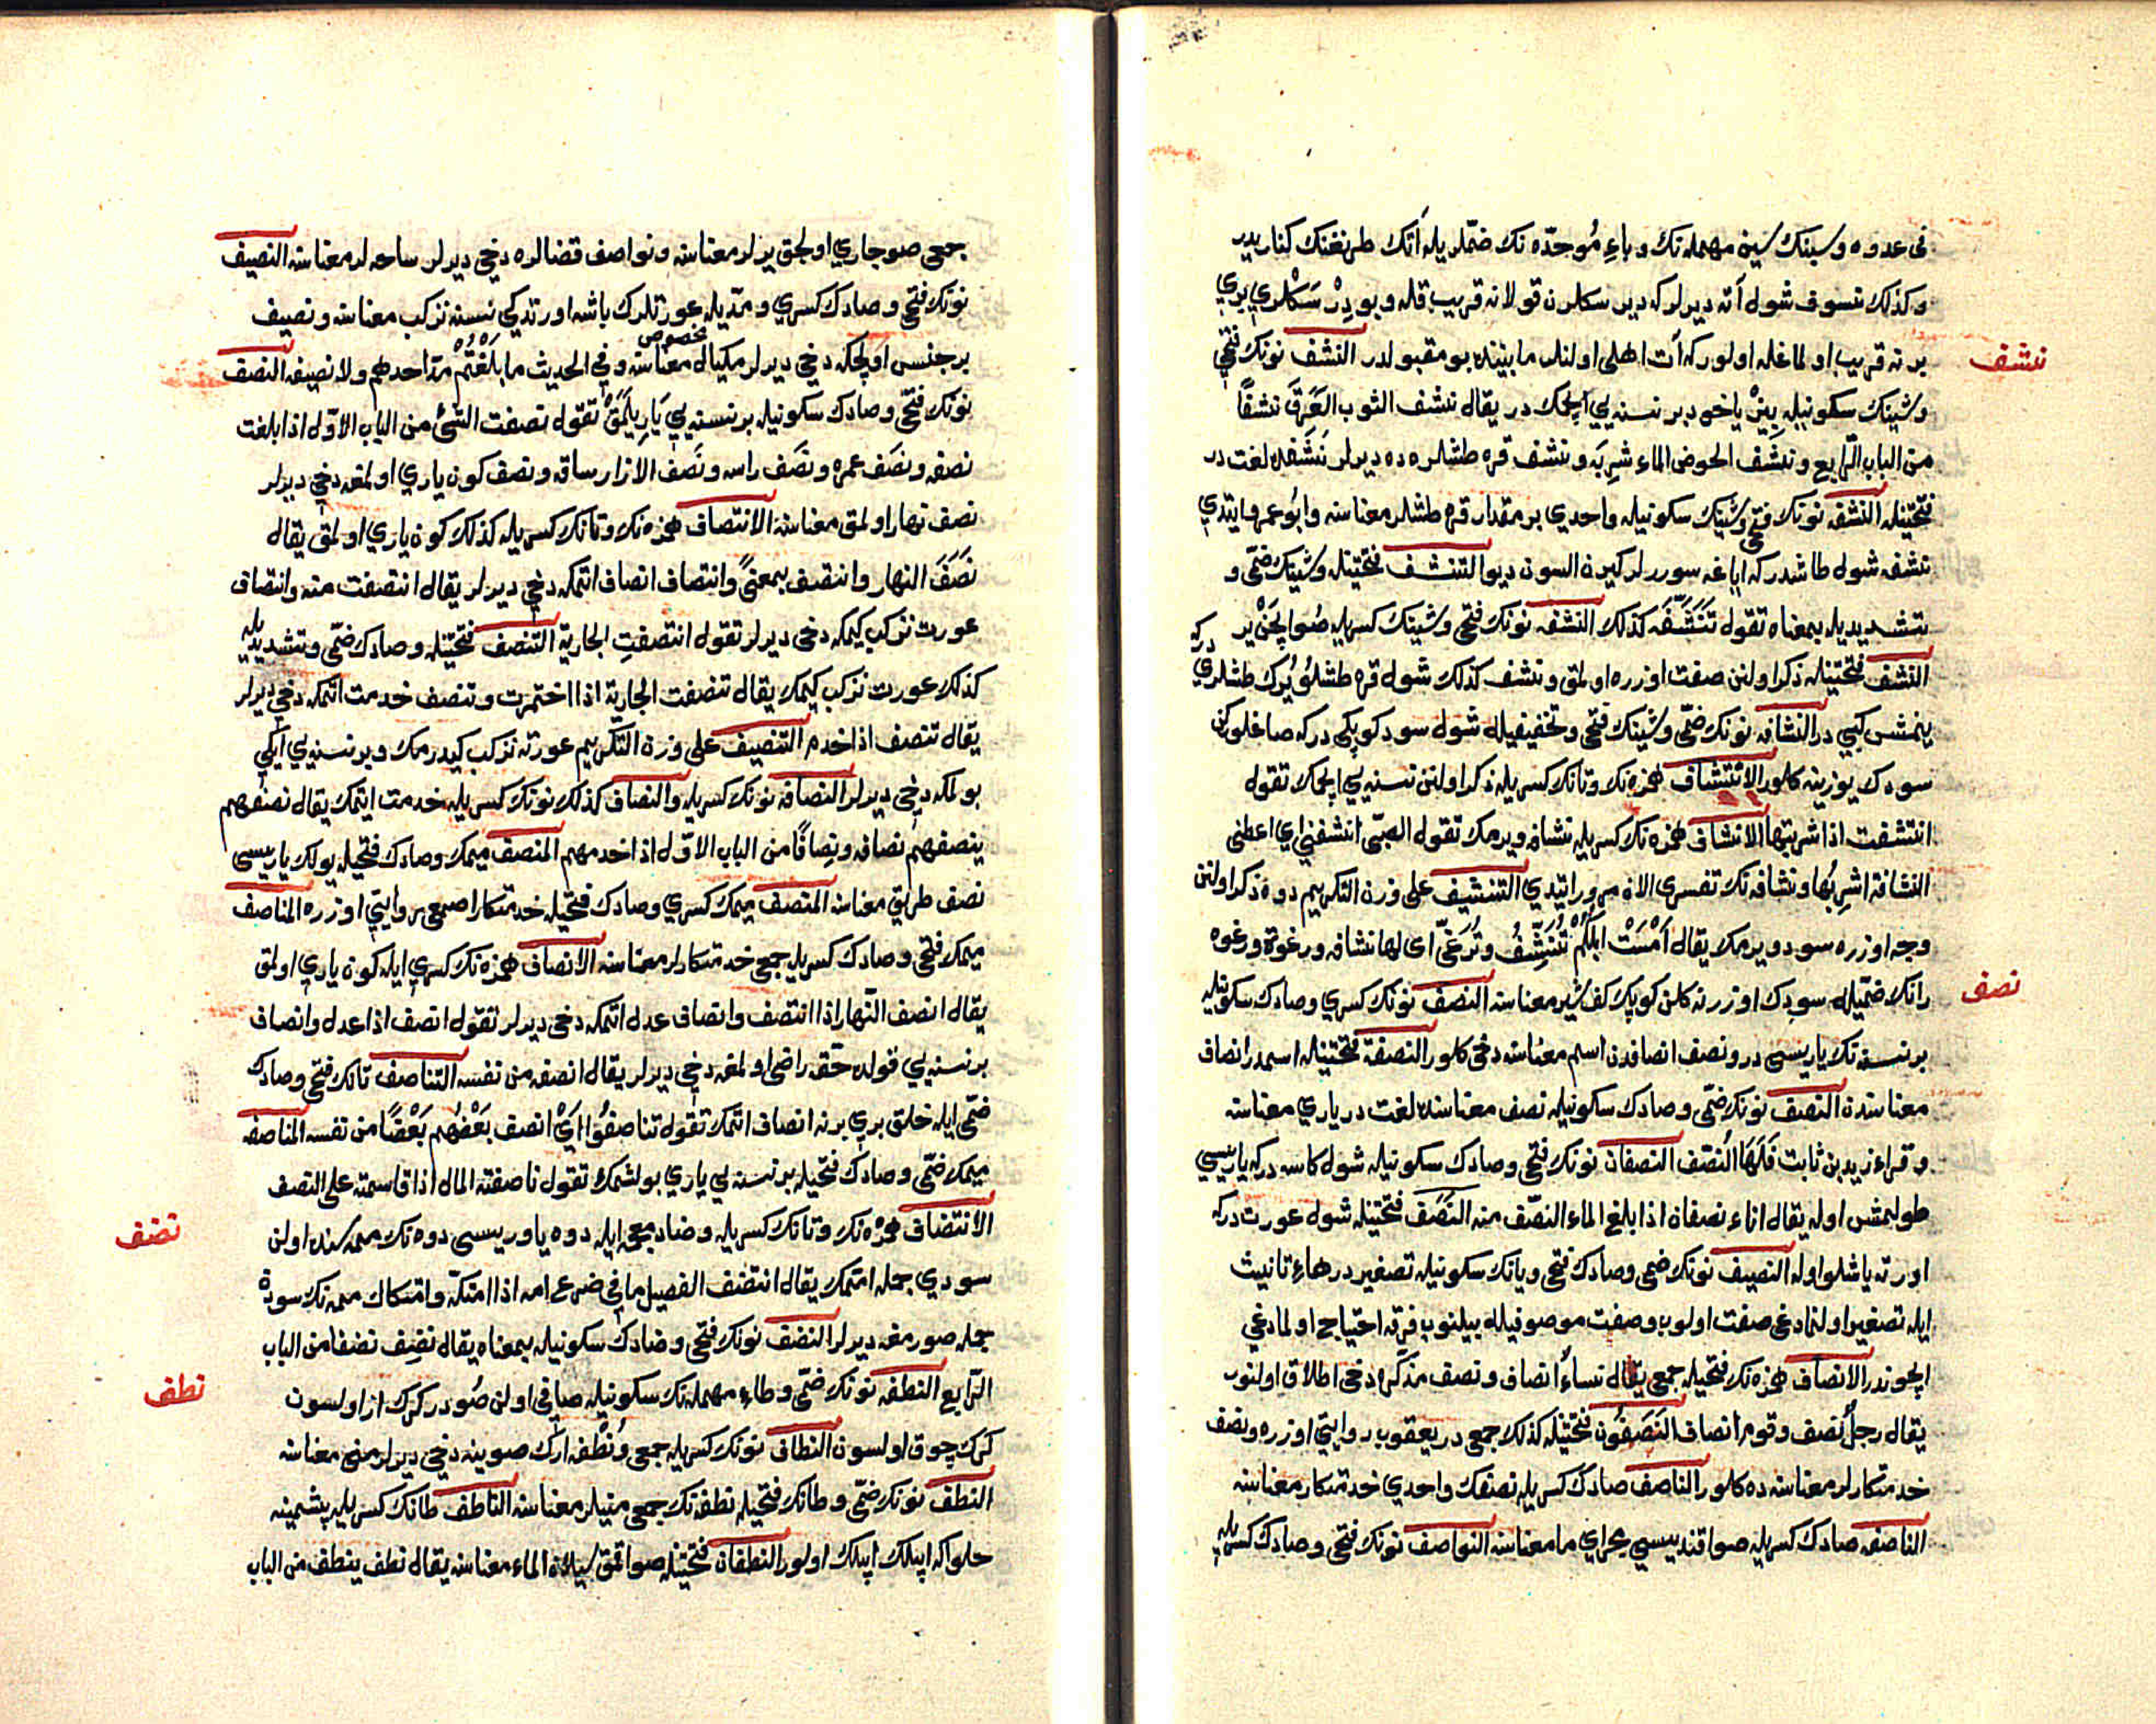 فى عدوه وسبنك سين مهمله نك وباء موحده نك ضمّلريله أتك طرنغنك كناريدر
وكذلك نسوف شول أته ديرلر كه دبر سكلرن قولانه قريب قله وبودر سكلري يري
برنه قريب اولماغله اولور كه أت اهلى اولنلر مابيننده بو مقبولدر النشف نونك فتحي
نشف
وشينك سكونيله بيز ياخود بر نسنه يي ايچمك در يقال نشف الثوب العرق نشفاً
من الباب الرابع ونشف الحوض الماء شربه ونشف قره طشلره ده ديرلر نشفده لغت در
فتحتيله النشفه نونك فتحي وشينك سكونيله واحدي بر مقدار قره طشلر معناسنه وابو عمرو ايتدي
نشفه شول طاشدر كه اياغه سوررلر كيرن السون ديو التنشف فتحتيله وشينك ضمّى و
تشديديله بمعناه تقول تنشّفه كذلك النشفه نونك فتحي وشينك كسريله صو ايچن ير دركه
النشف فتحتيله ذكر اولنن صفت اوزره اولمق ونشف كذلك شول قره طشلو يرك طشلري
ينمش كبي در النشافه نونك ضمّى وشينك فتحي وتخفيفيله شول سود كوپكى دركه صاغلوركن
سودك يوزينه كلور الانتشاف همزه نك وتانك كسريله ذكر اولنن نسنه يي ايچمك تقول
انتشفت اذا شربتها الانشاف همزه نك كسريله نشافه ويرمك تقول الصبّى انشفني اي اعطنى
النشافة اشربها ونشافه نك تفسيرى الان مرور ايتدي التنشيف على وزن التكريم دوه ذكر اولنن
وجه اوزره سود ويرمك يقال أمست ابلكم تنشّف وترغّى اى لها نشافه ورغوة ورغوه
رانك ضمّيله سودك اوزرنه كلن كوپك كفشير معناسنه النصف نونك كسري وصادك سكونيله
نصف
بر نسنه نك ياريسى در ونصف انصافدن اسم معناسنه دخى كلور النصفة فتحتيله اسمدر انصاف
معناسندن النصف نونك ضمّى وصادك سكونيله نصف معناسنده لغت در ياري معناسنه
وقراء زيد بن ثابت فلها النّصف النصفان نونك فتحي وصادك سكونيله شول كاسه دركه ياريسي
طولمش اوله يقال اناء نصفان اذا بلغ الماء النّصف منه النصف فتحتيله شول عورت دركه
اورته ياشلو اوله النصيف نونك ضمى وصادك فتحي ويانك سكونيله تصغيردر هاء تانيث
ايله تصغير اولنمادغى صفت اولوب وصفت موصوفيله بيلنوب فرقه احتياج اولمادغي
ايچوندر الانصاف همزه نك فتحيله جمعى يقال نساء انصاف ونصف مذكره دخى اطلاق اولنور
يقال رجل نصف وقوم انصاف النصفون فتحتيله كذلك جمعى در يعقوب روايتي اوزره ونصف
خدمتكارلر معناسنه ده كلور الناصف صادك كسريله نصفك واحدي خدمتكار معناسنه
الناصفه صادك كسريله صو اقنديسى مجراي ما معناسنه النواصف نونك فتحي وصادك كسريله
جمعى صو جاري اولجق يرلر معناسنه ونواصف قضالره دخى ديرلر ساحه لر معناسنه النصيف
نونك فتحي وصادك كسري ومدّيله عورتلرك باشه اورتدكي نسنه نزكب معناسنه ونصيف
بر جنس اولچكه دخى ديرلر مكيال مخصوص معناسنه وفي الحديث ما بلغتم مدّ احدهم ولا نصيفه النصف
نونك فتحي وصادك سكونيله بر نسنه يي ياريلمق تقول نصفت الشئ من الباب الاوّل اذا بلغت
نصفه ونصف عمره ونصف راسه ونصف الازار ساقه ونصف كون ياري اولمغه دخى ديرلر
نصف نهار اولمق معناسنه الانتصاف همزه نك وتانك كسريله كذلك كون ياري اولمق يقال
نصف النهار وانتصف بمعنىً وانتصاف انصاف اتمكه دخى ديرلر يقال انتصفت منه وانتصاف
عورت نزكب كيمكه دخى ديرلر تقول انتصفت الجارية التنصف فتحتيله وصادك ضمّى وتشديديله
كذلك عورت نزكب كيمك يقال تنصفت الجارية اذا اختمرت وتنصف خدمت اتمكه دخى ديرلر
يقال تنصف اذا خدم التنصيف على وزن التكريم عورته نزكب كيدرمك وبر نسنه يي ايكي
بولمكه دخى ديرلر النصافه نونك كسريله والنصاف كذلك نونك كسريله خدمت ايتمك يقال نصفهم
ينصفهم نصافه ونصافاً من الباب الاوّل اذا خدمهم المنصف ميمك وصادك فتحيله يولك ياريسى
نصف طريق معناسنه المنصف ميمك كسري وصادك فتحيله خدمتكار اصمعى روايتي اوزره المناصف
ميمك فتحي وصادك كسريله جمعى خدمتكارلر معناسنه الانصاف همزه نك كسري ايله كون ياري اولمق
يقال انصف النهار اذا انتصف وانصاف عدل اتمكه دخى ديرلر تقول انصف اذا عدل وانصاف
بر نسنه يي قولده حقه راضى اولمغه دخى ديرلر يقال انصفه من نفسه التناصف تانك فتحي وصادك
ضمّى ايله خلق بري برنه انصاف اتمك تقول تناصفوا اي انصف بعضهم بعضاً من نفسه المناصفه
ميمك ضمّى وصادك فتحيله بر نسنه يي ياري بولشمك تقول ناصفته المال اذا قاسمته على النصف
الانتضاف همزه نك وتانك كسريله وضاد معجمه ايله دوه ياوريسى دوه نك ممه سنده اولن
نضف
سودي جمله اتمك يقال انتضف الفصيل ما في ضرع امه اذا امتكّه وامتكاك ممه نك سودن
جمله صورمغه ديرلر النضف نونك فتحي وضادك سكونيله بمعناه يقال نضف نضفا من الباب
الرّابع النطفه نونك ضمّى وطاء مهمله نك سكونيله صافي اولن صودر كرك از اولسون
نطف
كرك چوق اولسون النطاف نونك كسريله جمعى ونطفه ارك صوينه دخى ديرلر منى معناسنه
النطف نونك ضمّى وطانك فتحيله نطفه نك جمعى منيلر معناسنه الناطف طانك كسريله پشمينه
حلوا كه اپيلك اپيلك اولور النطفان فتحتيله صو اقمق سيلان الماء معناسنه يقال نطف ينطف من الباب